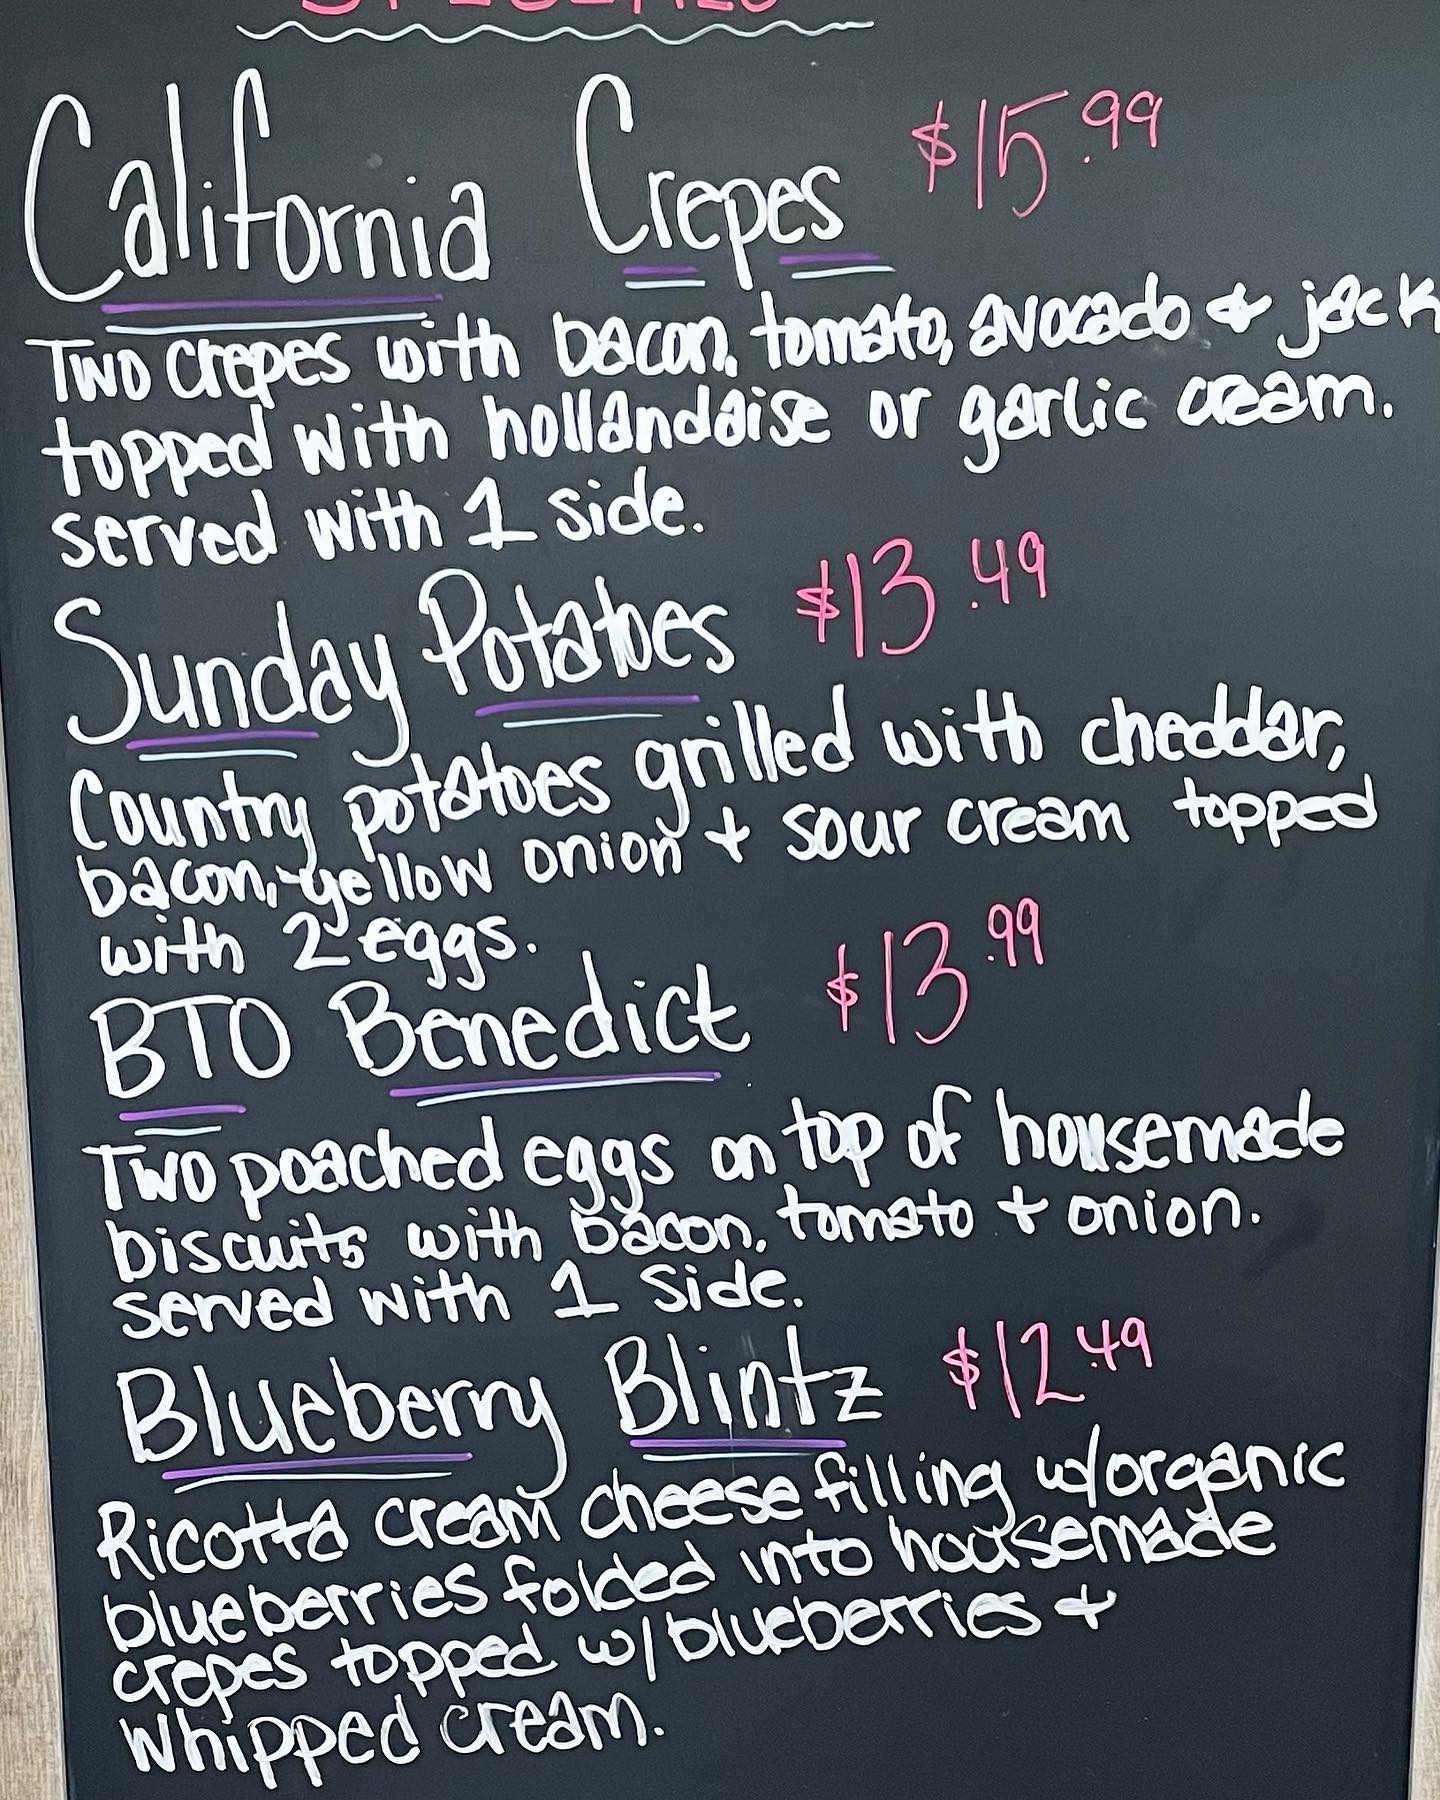 SPECIALS
California Crepes $15.99
Two crepes with bacon, tomato, avocado & jack
topped with hollandaise or garlic cream.
served with 1 side.
Sunday Potatoes $13.49
Country potatoes grilled with cheddar,
bacon, yellow onion + sour cream topped
with 2 eggs.
BTO Benedict $13.99
Two poached eggs on top of housemade
biscuits with bacon, tomato + onion.
served with 1 side.
Blueberry Blintz $12.49
Ricotta cream cheese filling w/organic
blueberries folded into housemade
crepes topped w/blueberries +
whipped cream.